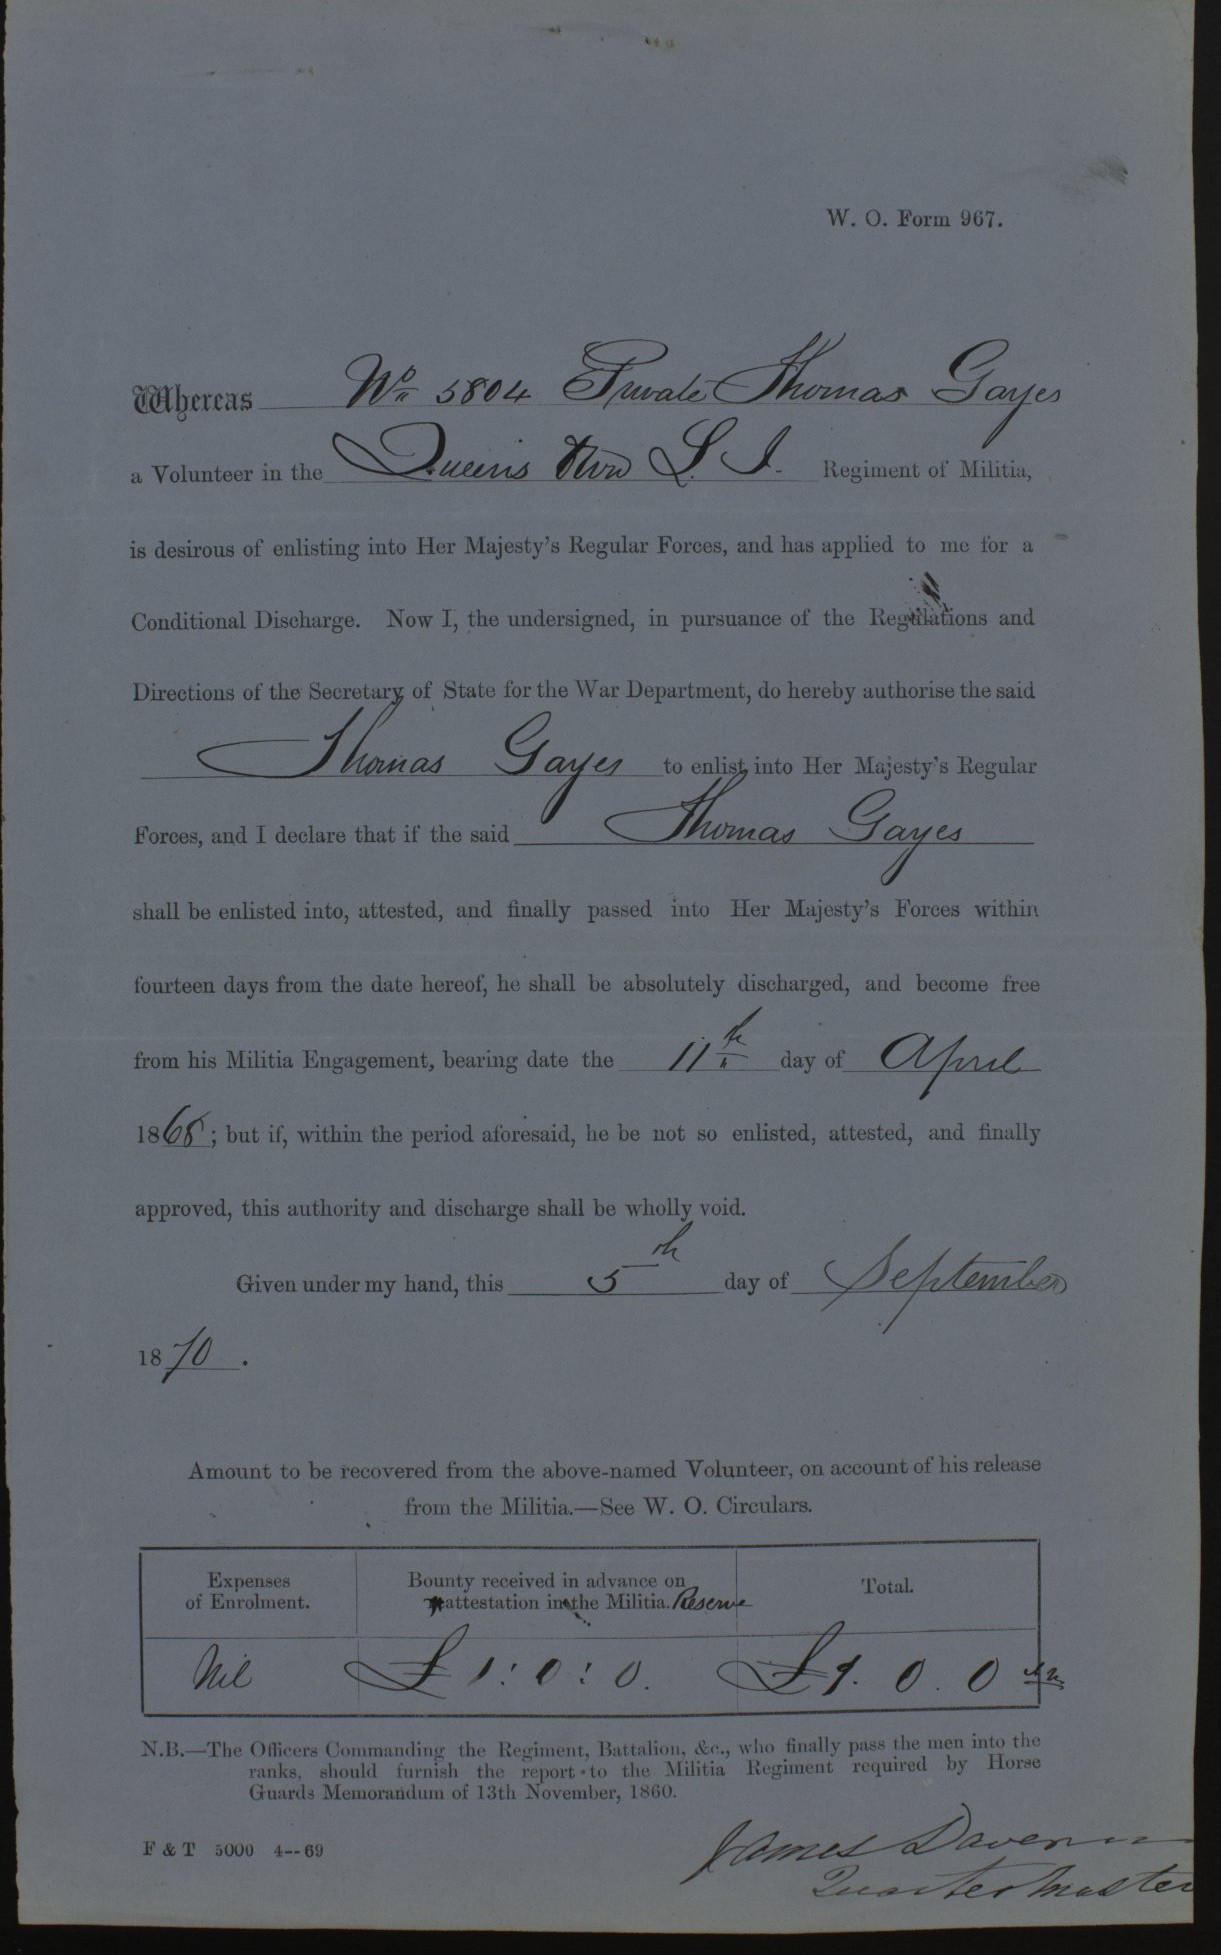 W. O. Form 967.
Whereas No 5804 Private Thomas Gayes
a Volunteer in the Queens Own L. I. Regiment of Militia,
is desirous of enlisting into Her Majesty's Regular Forces, and has applied to me for a
Conditional Discharge. Now I, the undersigned, in pursuance of the Regulations and
Directions of the Secretary of State for the War Department, do hereby authorise the said
Thomas Gayes to enlist into Her Majesty's Regular
Forces, and I declare that if the said Thomas Gayes
shall be enlisted into, attested, and finally passed into Her Majesty's Forces within
fourteen days from the date hereof, he shall be absolutely discharged, and become free
from his Militia Engagement, bearing date the 11th day of April
1868; but if, within the period aforesaid, he be not so enlisted, attested, and finally
approved, this authority and discharge shall be wholly void.
Given under my hand, this 5th day of September
1870.
Amount to be recovered from the above-named Volunteer, on account of his release
from the Militia.—See W. O. Circulars.
Expenses
of Enrolment.
Bounty received in advance on
attestation in the Militia. Reserve
Total.
Nil £1:0:0. £1.0.0
N.B.—The Officers Commanding the Regiment, Battalion, &c., who finally pass the men into the
ranks, should furnish the report to the Militia Regiment required by Horse
Guards Memorandum of 13th November, 1860.
F & T 5000 4--69
James
Quartermaster